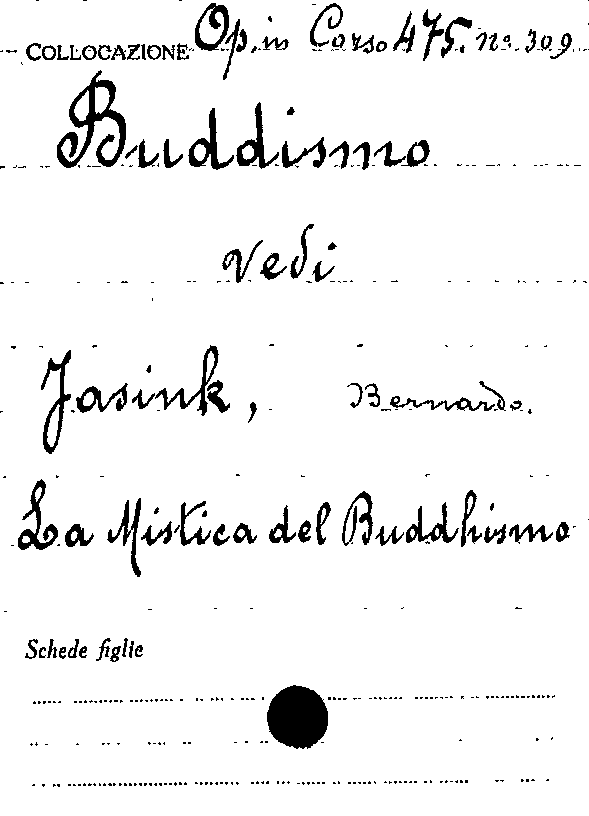 COLLOCAZIONE Op. in Corso 475. no. 309
Buddismo
vedi
Jasink, Bernardo.
La Mistica del Buddhismo
Schede figlie